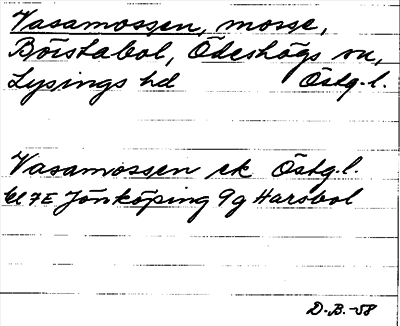 Vasamossen, mosse,
Börstabol, Ödeshögs sn,
Lysings hd Östg.l.
Vasamossen ek Östg.l.
bl 7E Jönköping 9g Harsbol
D.B.-58